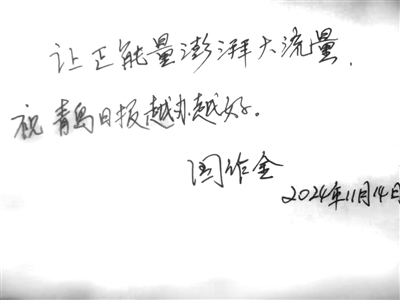 让正能量澎湃大流量,
祝青岛日报越办越好。
作金
2024年11月14日